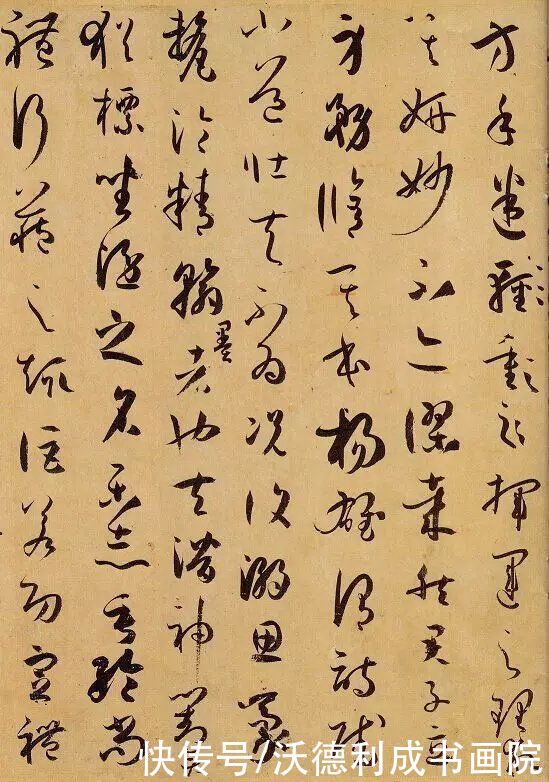 方手迷揮運之理求
其妍妙不亦謬哉然君子立
身務脩其本楊雄謂詩賦
小道壯夫不為況復溺思豪
氂淪精翰墨者也夫潛神對
猶標坐隱之名樂志垂綸尚
體行藏之趣詎若功宣禮
快传号/沃德利成书画院